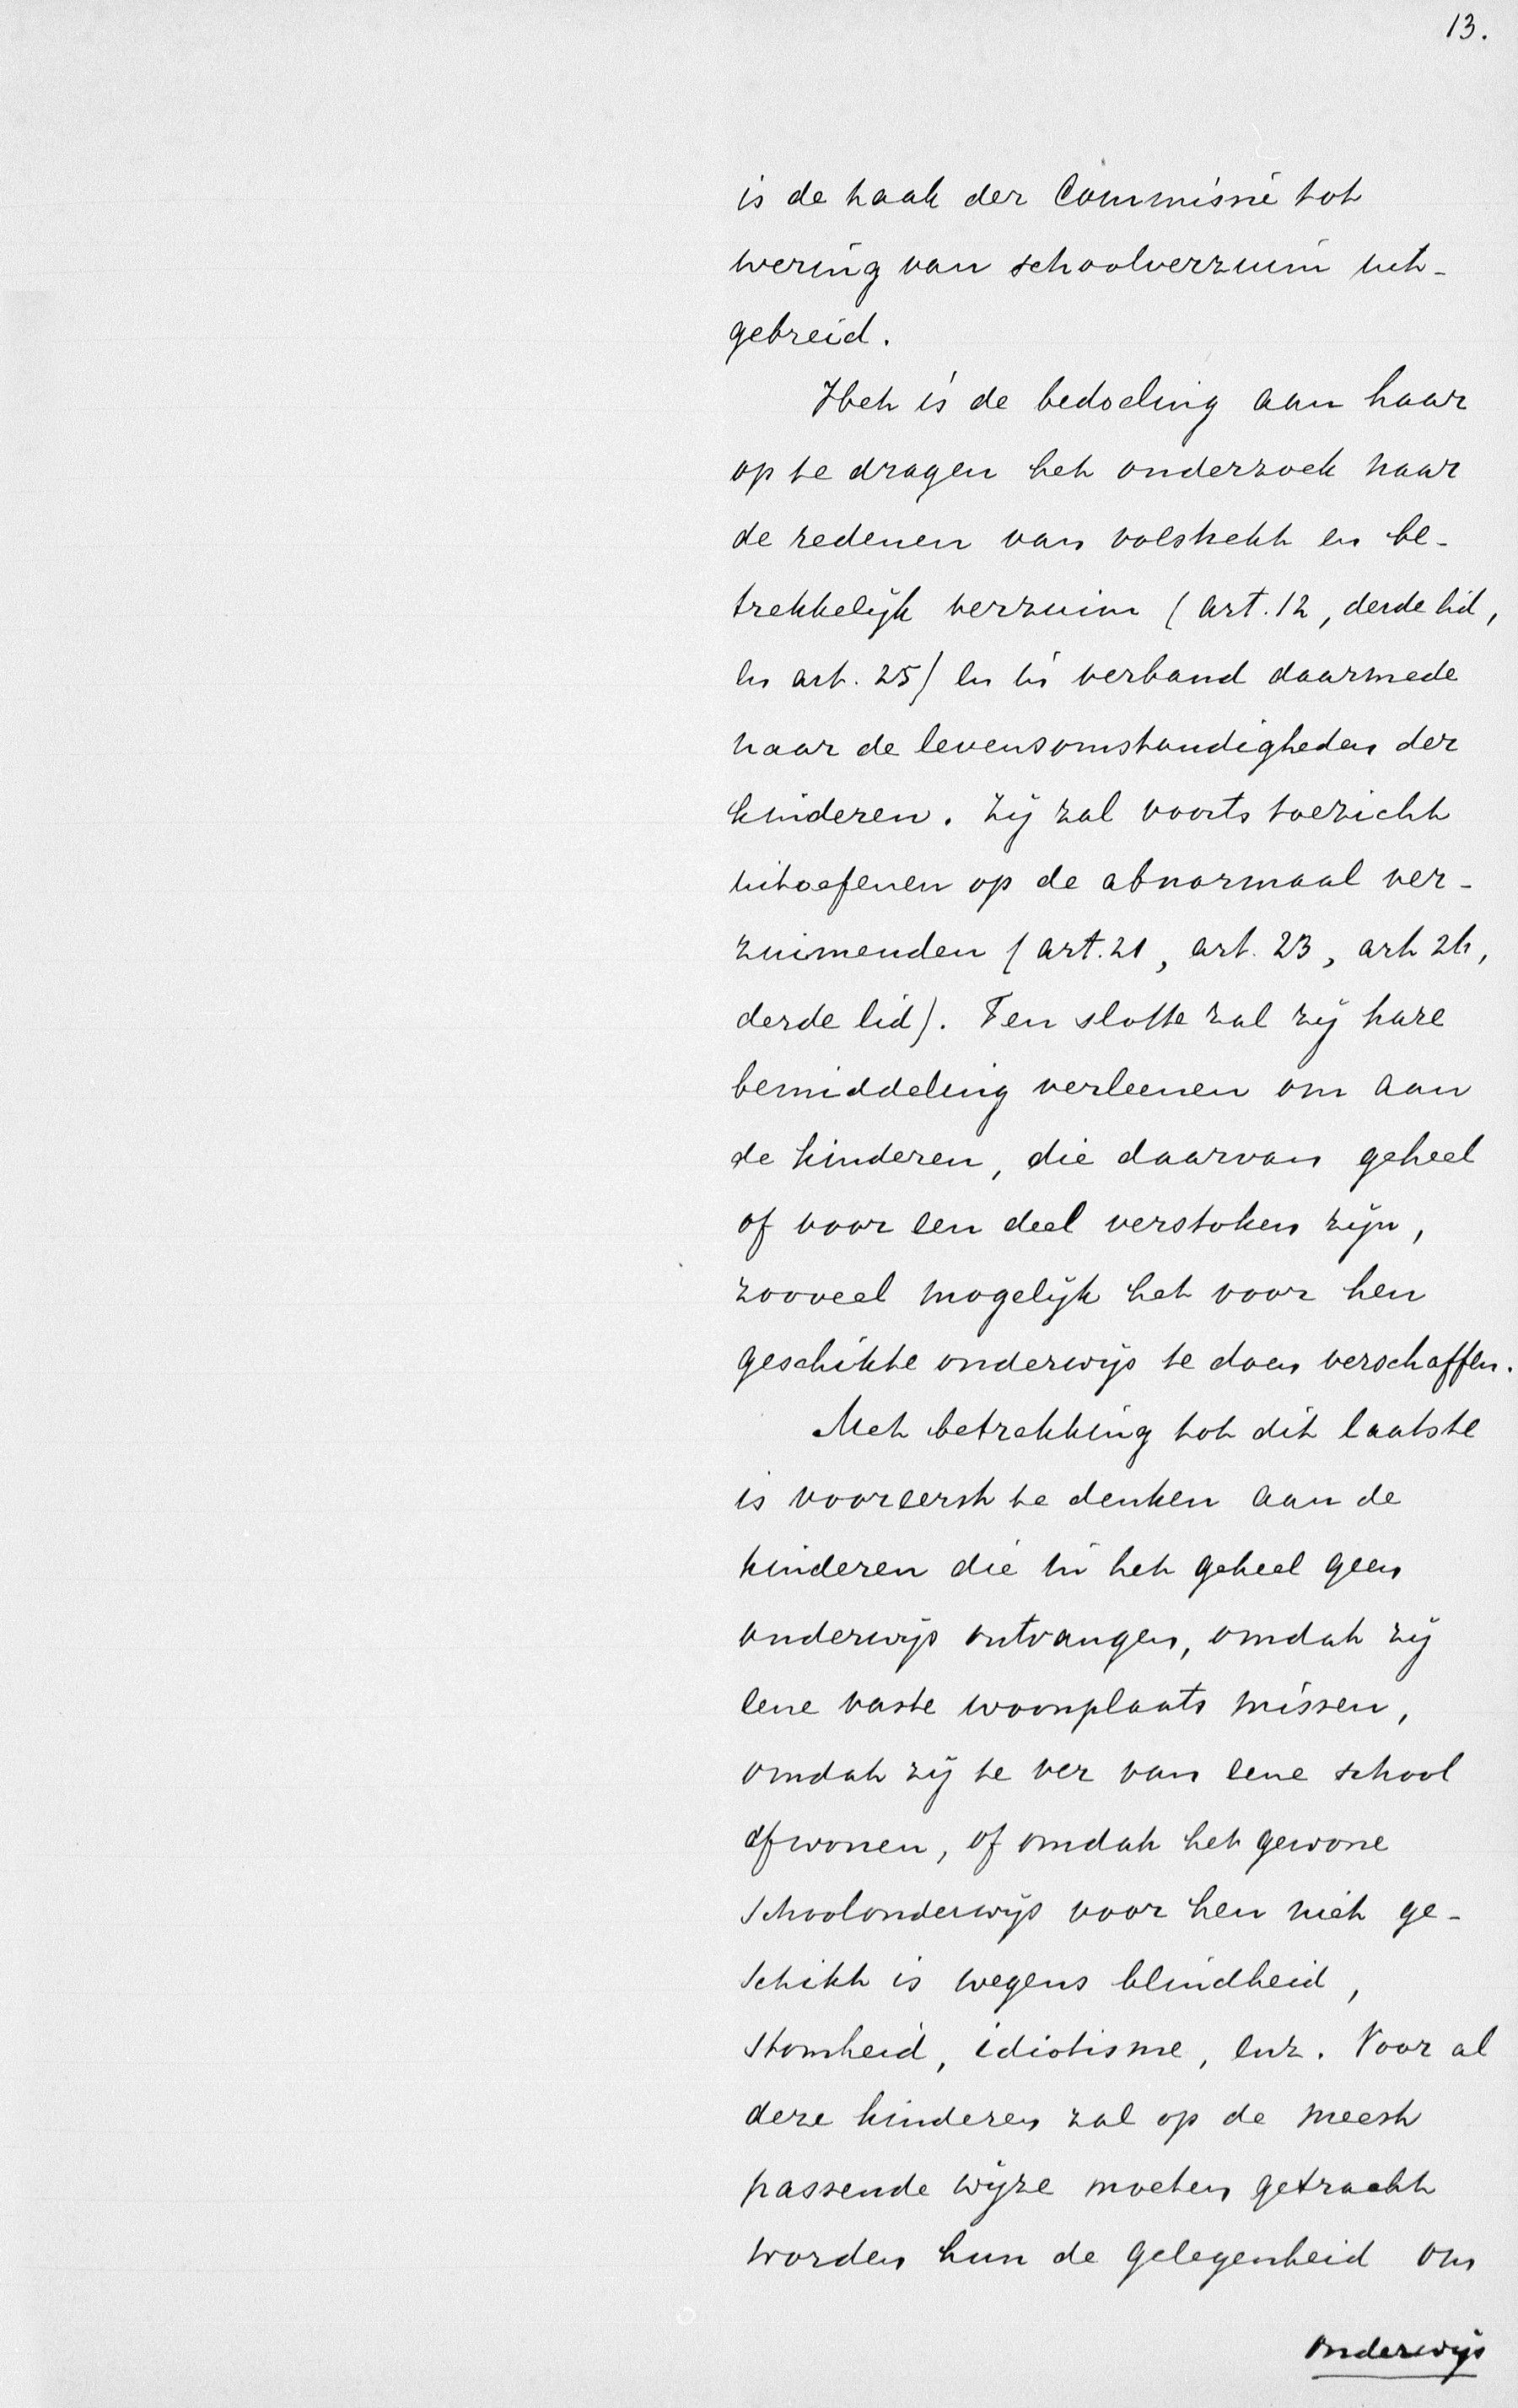 13.
is de taak der Commissie tot
wering van schoolverzuim uit-
gebreid.
Het is de bedoeling aan haar
op te dragen het onderzoek naar
de redenen van volstrekt en be-
trekkelijk verzuim (art. 12, derde lid,
en art. 25) en in verband daarmede
naar de levensomstandigheden der
kinderen. Zij zal voorts toezicht
uitoefenen op de abnormaal ver-
zuimenden (art. 21, art. 23, art 24,
derde lid). Ten slotte zal zij hare
bemiddeling verleenen om aan
de kinderen, die daarvan geheel
of voor een deel verstoken zijn,
zooveel mogelijk het voor hen
geschikte onderwijs te doen verschaffen.
Met betrekking tot dit laatste
is vooreerst te denken aan de
kinderen die in het geheel geen
onderwijs ontvangen, omdat zij
eene vaste woonplaats missen,
omdat zij te ver van eene school
afwonen, of omdat het gewone
schoolonderwijs voor hen niet ge-
schikt is wegens blindheid,
stomheid, idiotisme, enz. Voor al
deze kinderen zal op de meest
passende wijze moeten getracht
worden hun de gelegenheid om
onderwijs